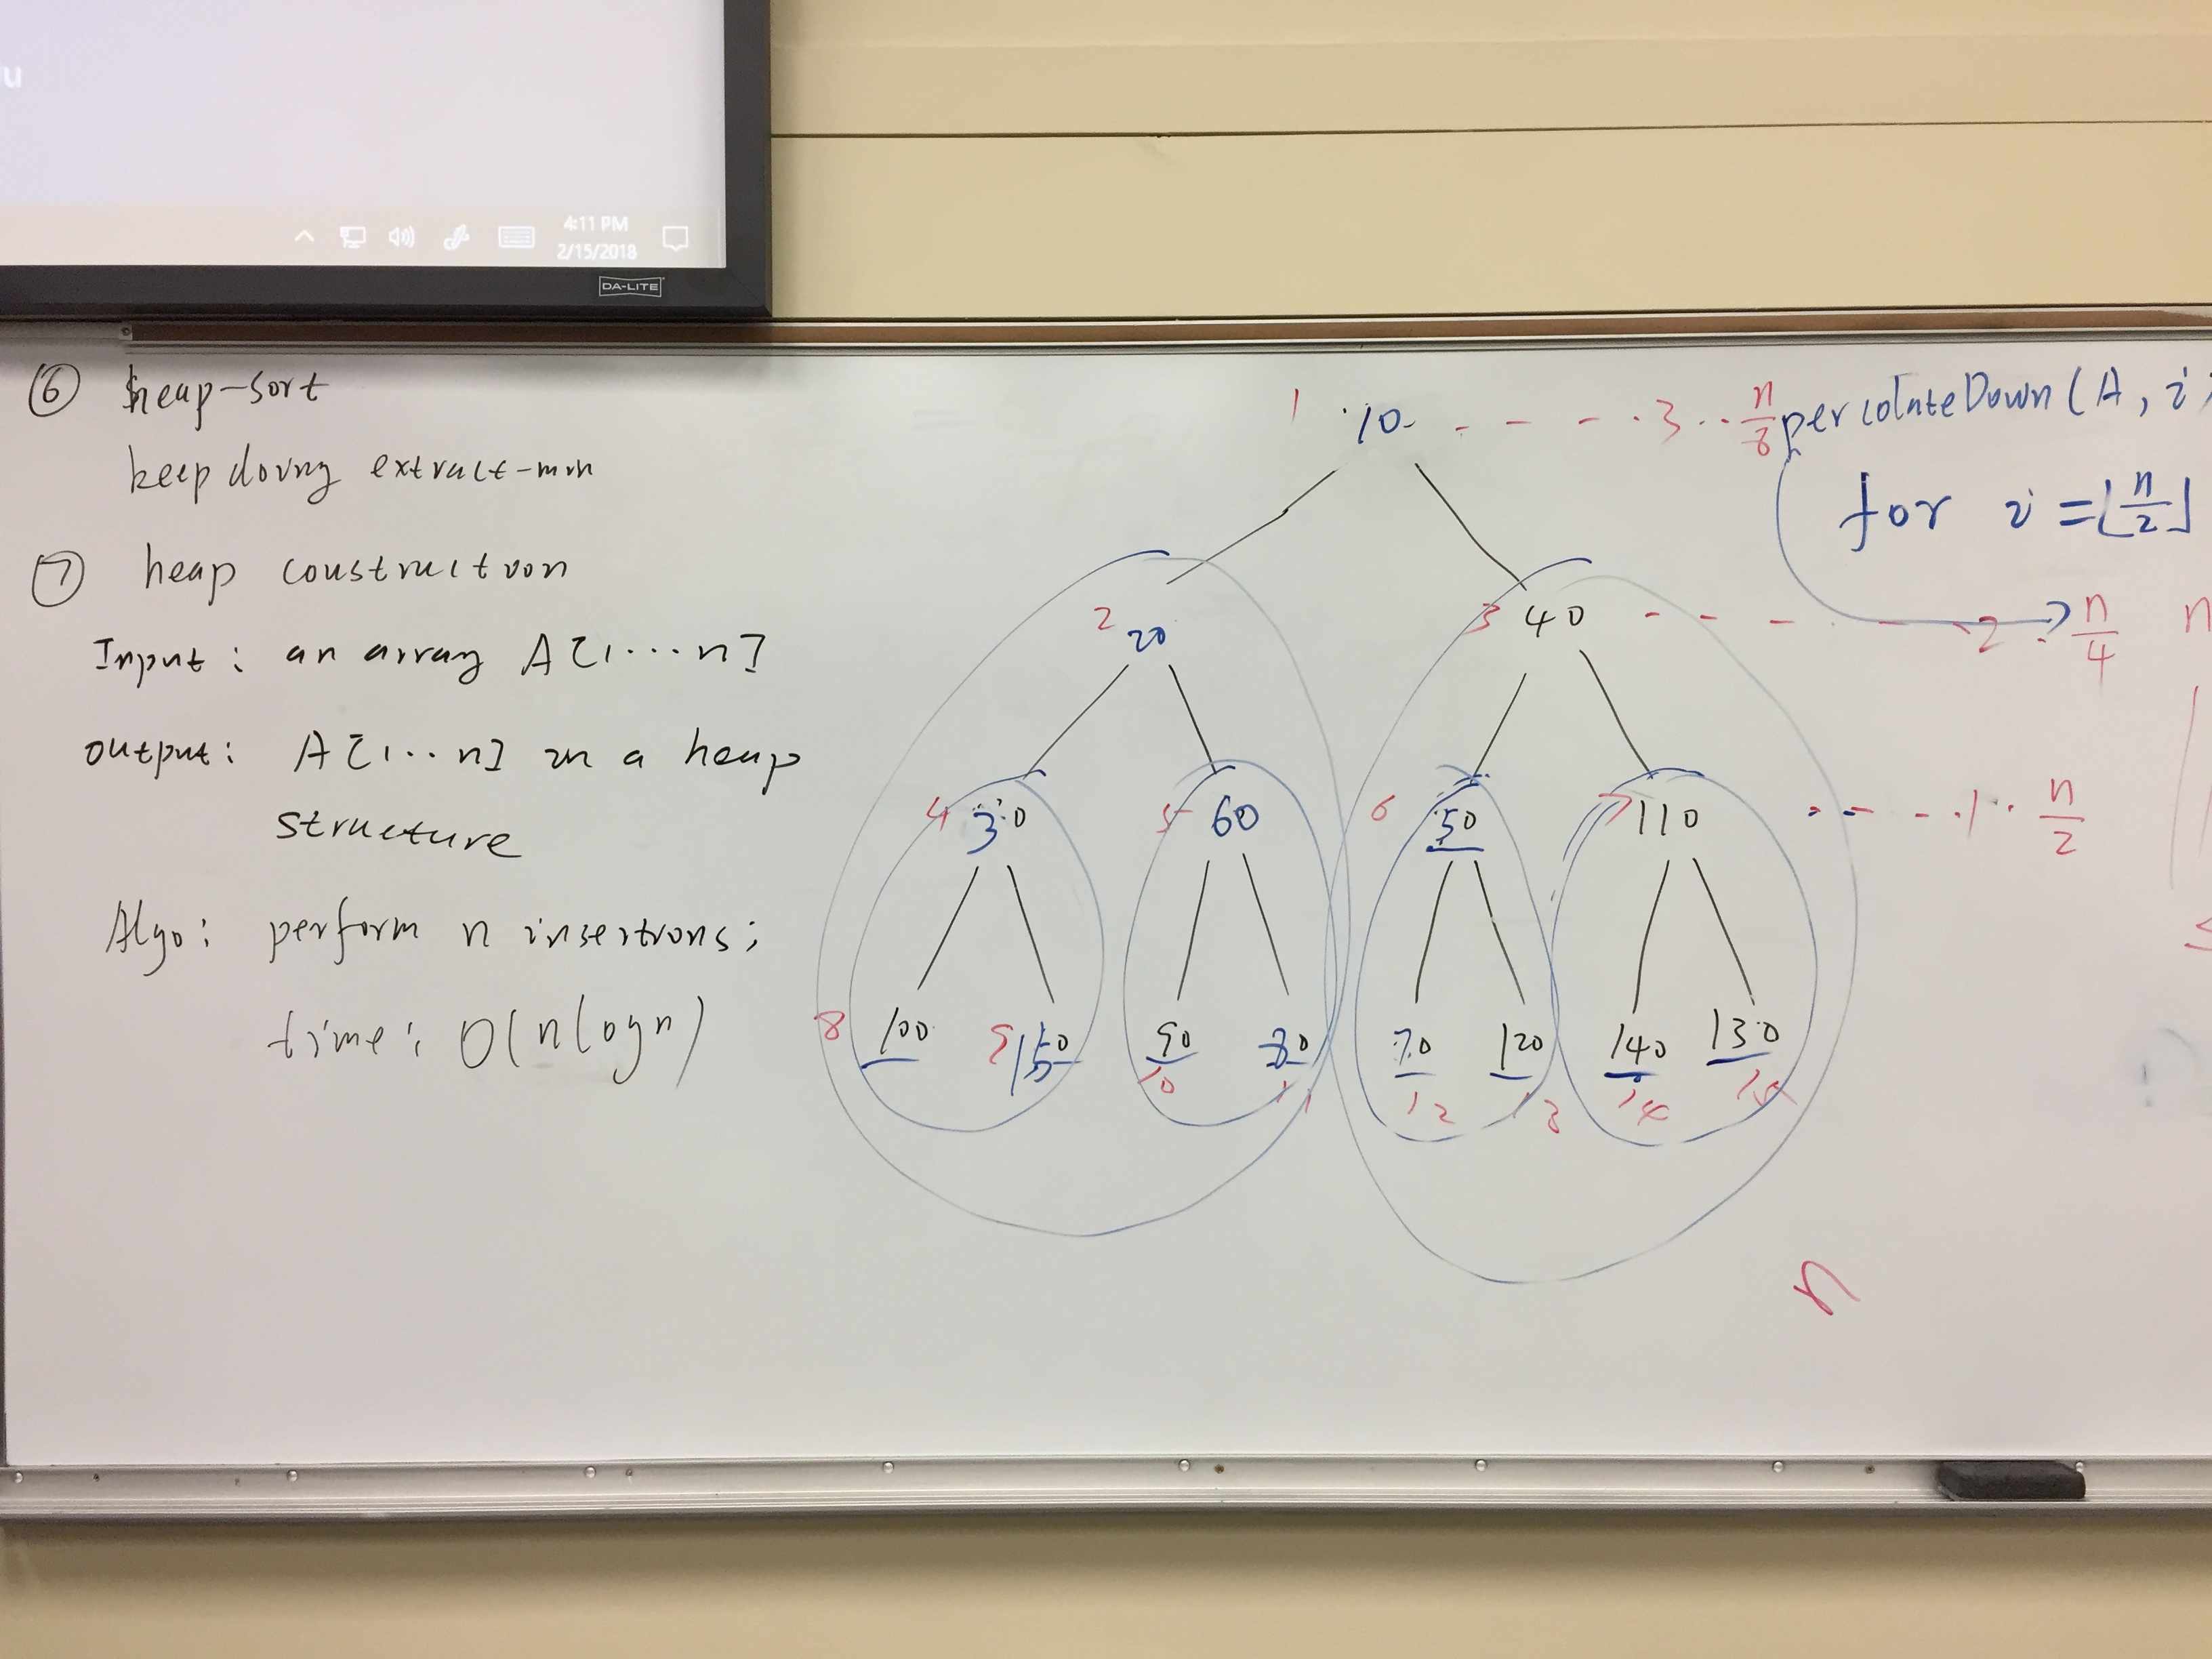 u
4:11 PM
2/15/2018
DA-LITE
⑥ heap-sort
keep doing extract-min
⑦ heap construction
Input: an array A[1···n]
output: A[1··n] in a heap
structure
Algo: perform n insertions;
time: O(nlogn)
1 10 - - - · 3 ·· n/8
percolateDown(A, i)
for i = ⌊n/2⌋
2 20 3 40 - - - - 2 · n/4 n
4 30 5 60 6 50 7 110 - - - · 1 ·· n/2
8 100 9 150 90 80 70 120 140 130
10 11 12 13 14 15
n